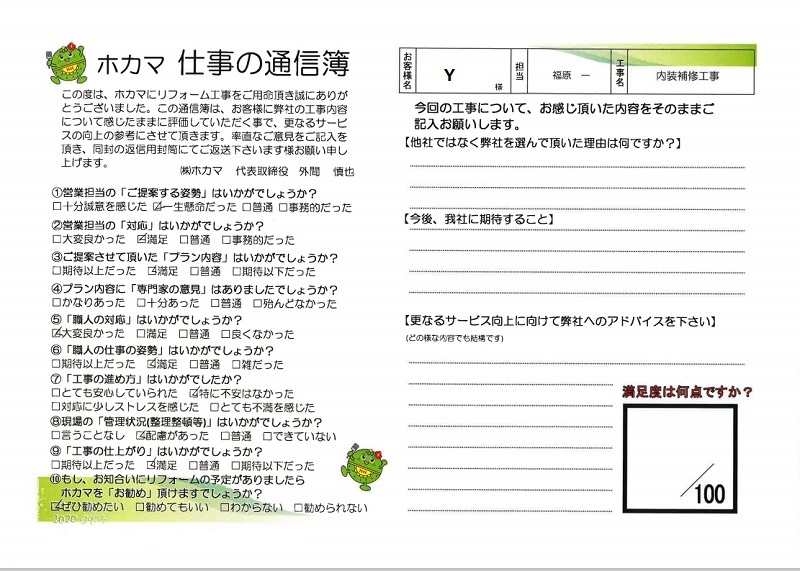 ホカマ 仕事の通信簿
この度は、ホカマにリフォーム工事をご用命頂き誠にありが
とうございました。この通信簿は、お客様に弊社の工事内容
について感じたままに評価していただく事で、更なるサービ
スの向上の参考にさせて頂きます。率直なご意見をご記入を
頂き、同封の返信用封筒にてご返送下さいます様お願い申し
上げます。
㈱ホカマ 代表取締役 外間 慎也
①営業担当の「ご提案する姿勢」はいかがでしょうか？
□十分誠意を感じた ☑一生懸命だった □普通 □事務的だった
②営業担当の「対応」はいかがでしょうか？
□大変良かった ☑満足 □普通 □事務的だった
③ご提案させて頂いた「プラン内容」はいかがでしょうか？
□期待以上だった ☑満足 □普通 □期待以下だった
④プラン内容に「専門家の意見」はありましたでしょうか？
□かなりあった □十分あった □普通 □殆んどなかった
⑤「職人の対応」はいかがでしょうか？
☑大変良かった □満足 □普通 □良くなかった
⑥「職人の仕事の姿勢」はいかがでしょうか？
□期待以上だった ☑満足 □普通 □雑だった
⑦「工事の進め方」はいかがでしたか？
□とても安心していられた ☑特に不安はなかった
□対応に少しストレスを感じた □とても不満を感じた
⑧現場の「管理状況(整理整頓等)」はいかがでしょうか？
□言うことなし ☑配慮があった □普通 □できていない
⑨「工事の仕上がり」はいかがでしょうか？
□期待以上だった ☑満足 □普通 □期待以下だった
⑩もし、お知合いにリフォームの予定がありましたら
ホカマを「お勧め」頂けますでしょうか？
☑ぜひ勧めたい □勧めてもいい □わからない □勧められない
お客様名 Y 様 担当 福原 一 工事名 内装補修工事
今回の工事について、お感じ頂いた内容をそのままご
記入お願いします。
【他社ではなく弊社を選んで頂いた理由は何ですか？】
【今後、我社に期待すること】
【更なるサービス向上に向けて弊社へのアドバイスを下さい】
(どの様な内容でも結構です)
満足度は何点ですか？
／100